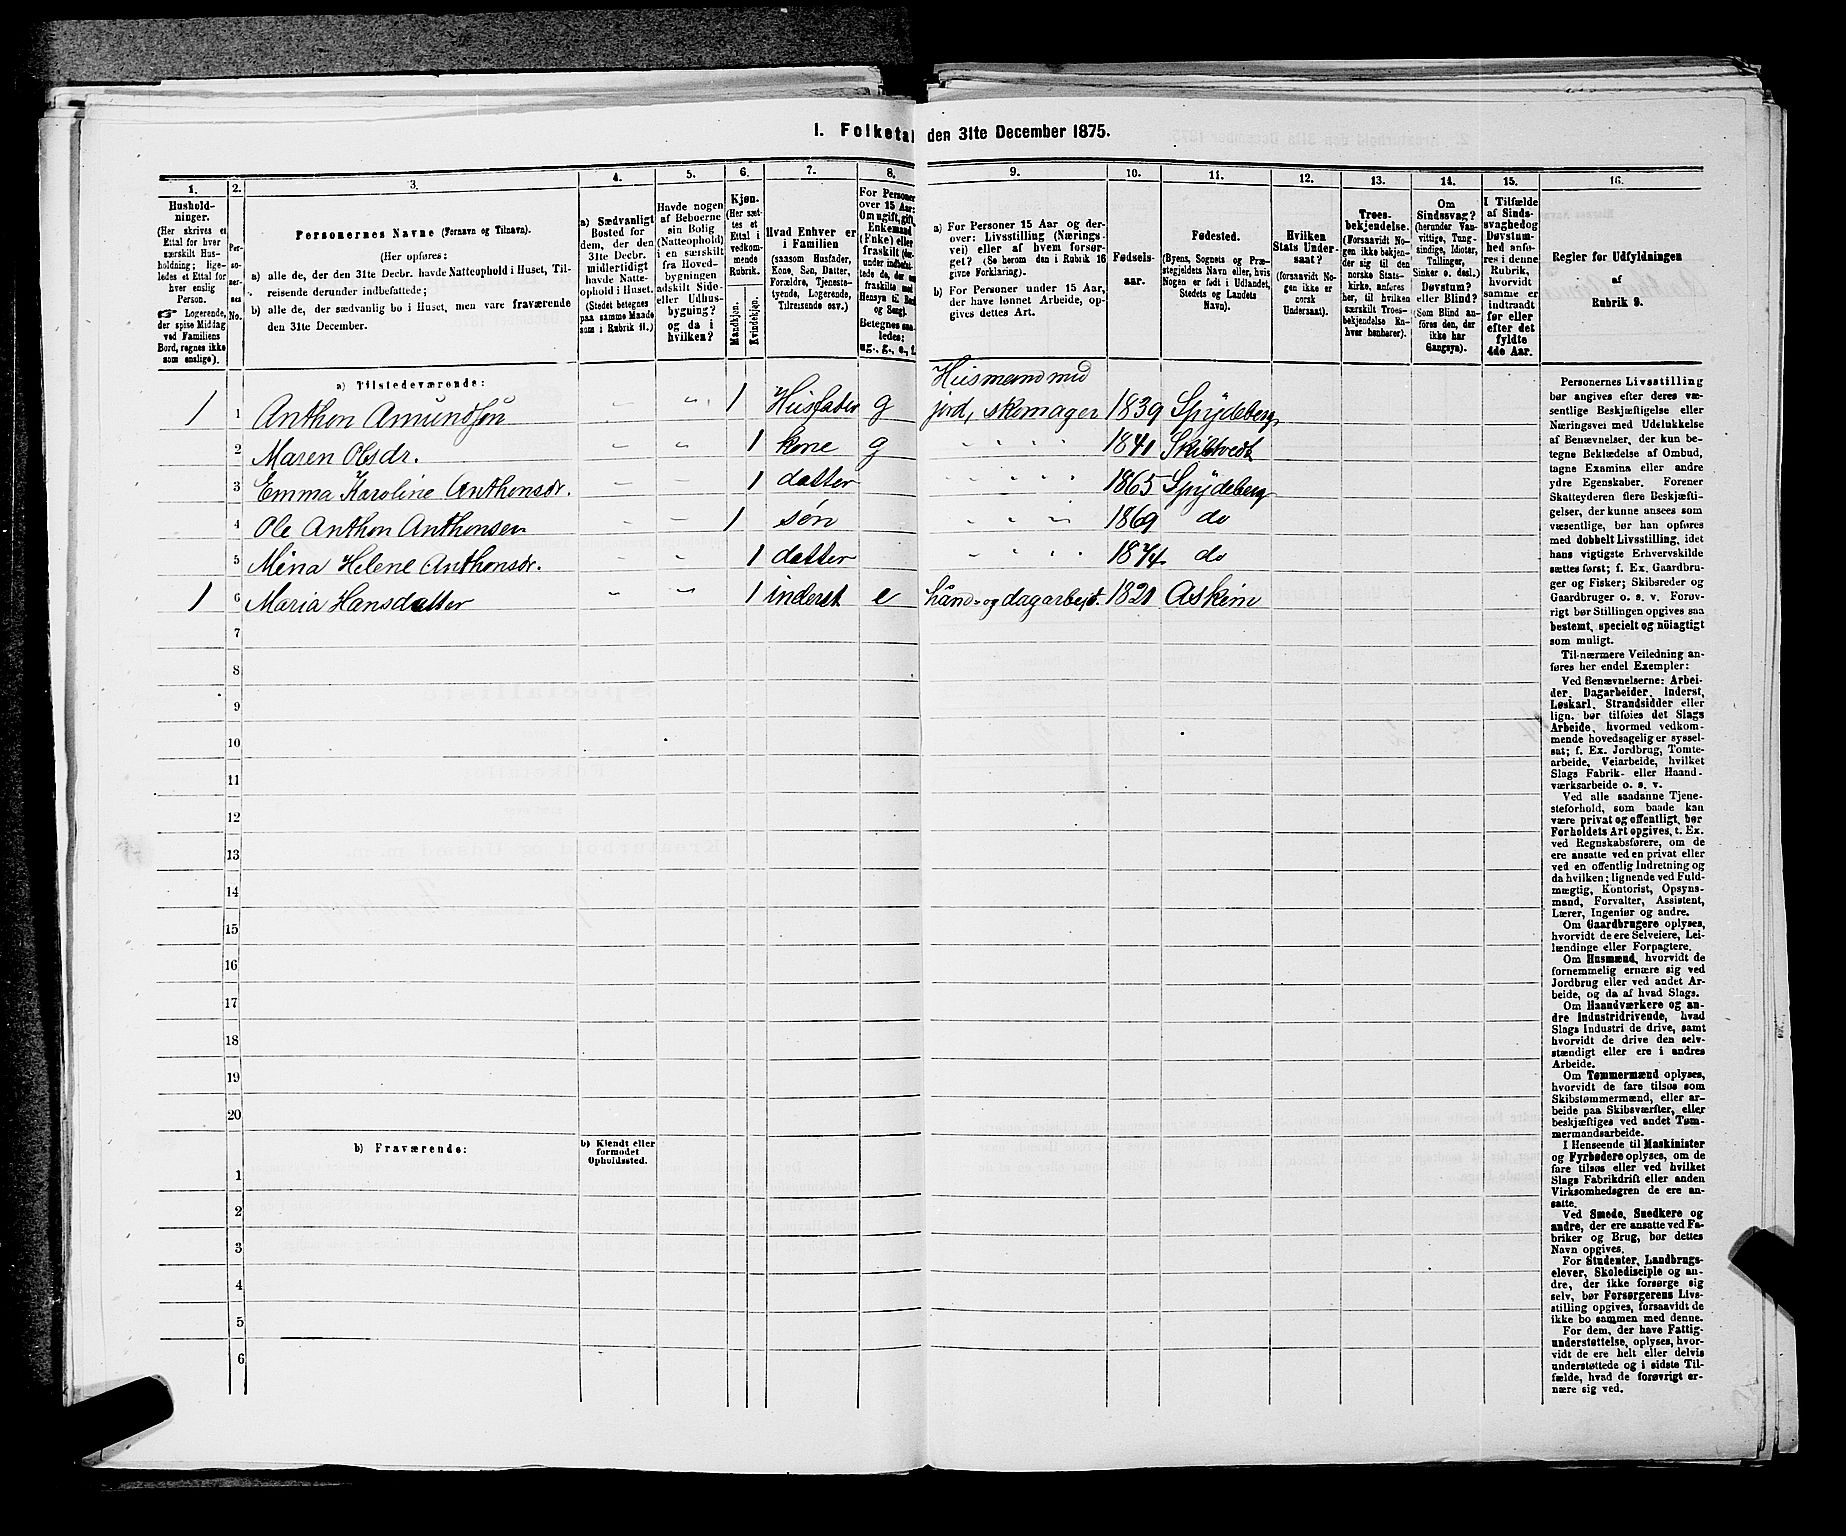 1. Folketal den 31te December 1875.
1. 2. 3. 4. 5. 6. 7. 8. 9. 10. 11. 12. 13. 14. 15. 16.
Hushold-
ninger.
(Her skrives et
Ettal for hver
særskilt Hus-
holdning; lige-
ledes et Ettal for
hver enslig
Person.
Logerende,
der spise Middag
ved Familiens
Bord, regnes ikke
som enslige).
Per-
so-
ner-
nes
No.
Personernes Navne (Fornavn og Tilnavn).
(Her opføres:
a) alle de, der den 31te Decbr. havde Natteophold i Huset, Til-
reisende derunder indbefattede;
b) alle de, der sædvanlig bo i Huset, men vare fraværende
den 31te December.
a) Sædvanligt
Bosted for
dem, der den
31te Decbr.
midlertidigt
havde Natte-
ophold i Huset.
(Stedet betegnes
paa samme Maade
som i Rubrik 11.)
Havde nogen
af Beboerne
sin Bolig
(Natteophold)
i en særskilt
fra Hoved-
bygningen
adskilt Side-
eller Udhus-
bygning?
og da i
hvilken?
Kjøn.
(Her sæt-
tes et
Ettal i
vedkom-
mende
Rubrik.
Mandkjøn.
Kvindekjøn.
Hvad Enhver er
i Familien
(saasom Husfader,
Kone, Søn, Datter,
Forældre, Tjeneste-
tyende, Logerende,
Tilreisende osv.)
For Personer
over 15 Aar:
Om ugift, gift,
Enkemand
(Enke) eller
fraskilt
Betegnes saa-
ledes:
ug., g., e., f.
a) For Personer 15 Aar og der-
over: Livsstilling (Nærings-
vei) eller af hvem forsør-
get? (Se herom den i Rubrik 16
givne Forklaring).
b) For Personer under 15 Aar,
der have lønnet Arbeide, op-
gives dettes Art.
Fødsels-
aar.
Fødested.
(Byens, Sognets og Præ-
stegjeldets Navn eller, hvis
Nogen er født i Udlandet,
Stedets og Landets
Navn).
Hvilken
Stats Under-
saat?
(forsaavidt No-
gen ikke er
norsk
Undersaat).
Troes-
bekjendelse.
(Forsaavidt No-
gen ikke bekjen-
der sig til den
norske Stats-
kirke, anføres
her, til hvilken
særskilt Troes-
bekjendelse En-
hver henhører).
Om
Sindssvag?
(herunder Van-
vittige, Tung-
sindige, Idioter,
Tullinger,
Sinker o. desl.)
Døvstum?
eller Blind?
(Som Blind an-
føres den, der
ikke har
Gangsyn).
I Tilfælde
af Sinds-
svaghed og
Døvstum-
hed anfø-
res i denne
Rubrik,
hvorvidt
samme er
indtraadt
før eller
efter det
fyldte
4de Aar.
Regler for Udfyldningen
af
Rubrik 9.
a) Tilstedeværende:
Husmand med
1 1 Anthon Amundsøn " " 1 Husfader g jord, skomager 1839 Spydeberg
2 Maren Olsdr. " " 1 kone g " " " " 1841 Skibtvedt
3 Emma Karoline Anthonsdr. " " 1 datter " " " " 1865 Spydeberg
4 Ole Anthon Anthonsen " " 1 søn " " " 1869 do
5 Mina Helene Anthonsdr. " " 1 datter " " " " 1874 do
1 6 Maria Hansdatter " " 1 inderst e hånd- og dagarbejd. 1821 Askim
7
8
9
10
11
12
13
14
15
16
17
18
19
20
b) Fraværende:
b) Kjendt eller
formodet
Opholdssted.
1
2
3
4
5
6
Personernes Livsstilling
bør angives efter deres væ-
sentlige Beskjæftigelse eller
Næringsvei med Udelukkelse
af Benævnelser, der kun be-
tegne Beklædelse af Ombud,
tagne Examina eller andre
ydre Egenskaber. Forener
Skatteyderen flere Beskjæfti-
gelser, der kunne ansees som
væsentlige, bør han opføres
med dobbelt Livsstilling, idet
hans vigtigste Erhvervskilde
sættes først; f. Ex. Gaardbru-
ger og Fisker; Skibsreder og
Gaardbruger o. s. v. Forøv-
rigt bør Stillingen opgives saa
bestemt, specielt og nöiagtigt
som muligt.
Til nærmere Veiledning an-
føres her endel Exempler:
Ved Benævnelserne: Arbei-
der, Dagarbeider, Inderst,
Løskarl, Strandsidder eller
lign. bør tilføies det Slags
Arbeide, hvormed vedkom-
mende hovedsagelig er syssel-
sat; f. Ex. Jordbrug, Tomte-
arbeide, Veiarbeide, hvilket
Slags Fabrik- eller Haand-
værksarbeide o. s. v.
Ved alle saadanne Tjene-
steforhold, som baade kan
være privat og offentligt, bør
Forholdets Art opgives, t. Ex.
ved Regnskabsførere, om de
ere ansatte ved en privat eller
ved en offentlig Indretning og
da hvilken; lignende ved Fuld-
mægtig, Kontorist, Opsyns-
mand, Forvalter, Assistent,
Lærer, Ingeniør og andre.
Om Gaardbrugere oplyses,
hvorvidt de ere Selveiere, Lei-
lændinge eller Forpagtere.
Om Husmænd, hvorvidt de
fornemmelig ernære sig ved
Jordbrug eller ved andet Ar-
beide, og da af hvad Slags.
Om Haandværkere og an-
dre Industridrivende, hvad
Slags Industri de drive, samt
hvorvidt de drive den selv-
stændigt eller ere i andres
Arbeide.
Om Tømmermænd oplyses,
hvorvidt de fare tilsøs som
Skibstømmermænd, eller ar-
beide paa Skibsværfter, eller
beskjæftiges ved andet Tøm-
mermandsarbeide.
I Henseende til Maskinister
og Fyrbødere oplyses, om de
fare tilsøs eller ved hvilket
Slags Fabrikdrift eller anden
Virksomhedsgren de ere an-
satte.
Ved Smede, Snedkere og
andre, der ere ansatte ved Fa-
briker og Brug, bør dettes
Navn opgives.
For Studenter, Landbrugs-
elever, Skoledisciple og an-
dre, der ikke forsørge sig
selv, bør Forsørgerens Livs-
stilling opgives, forsaavidt de
ikke bo sammen med denne.
For dem, der have Fattig-
understøttelse, oplyses, hvor-
vidt de ere helt eller delvis
understøttede og i sidste Til-
fælde, hvad de forøvrigt er-
nære sig ved.